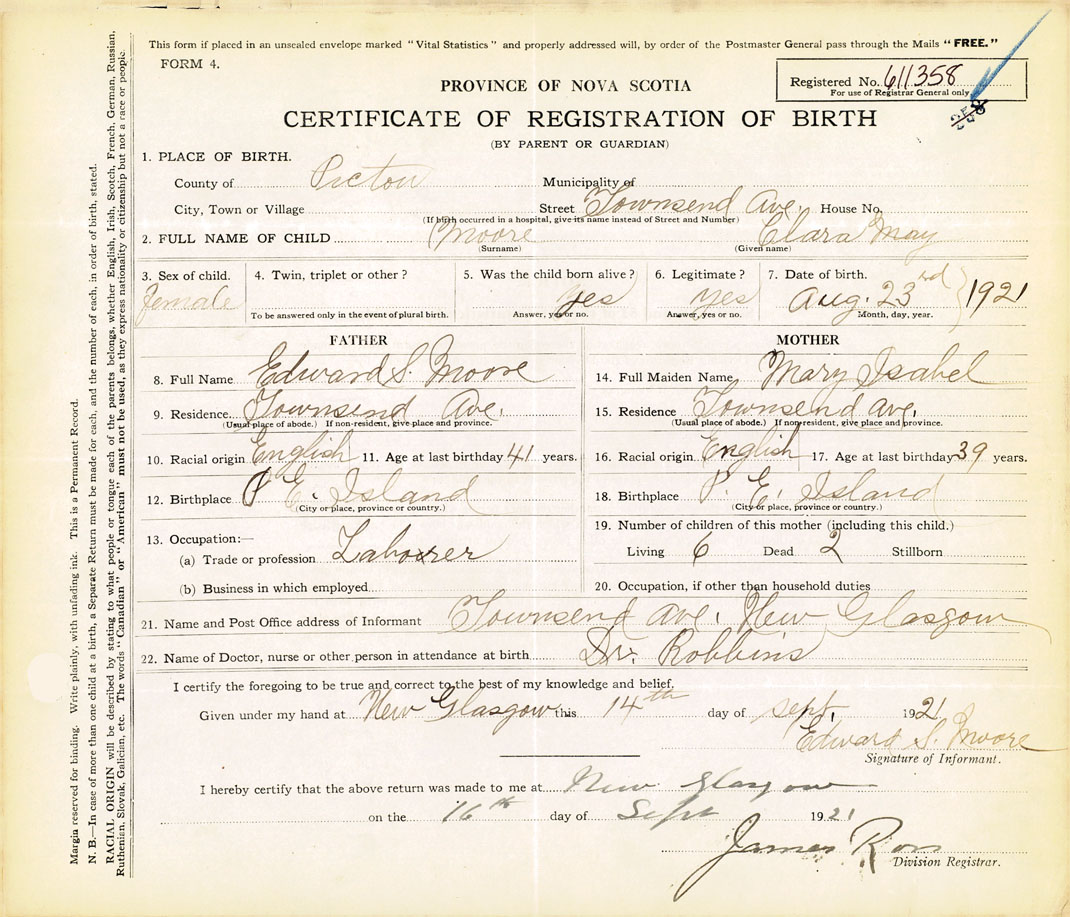 This form if placed in an unsealed envelope marked "Vital Statistics" and properly addressed will, by order of the Postmaster General pass through the Mails "FREE."
FORM 4.
Registered No. 611358
For use of Registrar General only
358
PROVINCE OF NOVA SCOTIA
CERTIFICATE OF REGISTRATION OF BIRTH
(BY PARENT OR GUARDIAN)
1. PLACE OF BIRTH.
County of Pictou Municipality of
City, Town or Village Street Townsend Ave. House No.
(If birth occurred in a hospital, give its name instead of Street and Number)
2. FULL NAME OF CHILD Moore Clara May
(Surname) (Given name)
3. Sex of child. 4. Twin, triplet or other? 5. Was the child born alive? 6. Legitimate? 7. Date of birth.
female yes yes Aug. 23rd 1921
To be answered only in the event of plural birth. Answer, yes or no. Answer, yes or no. Month, day, year.
FATHER
8. Full Name Edward S. Moore
9. Residence Townsend Ave.
(Usual place of abode.) If non-resident, give place and province.
10. Racial origin English 11. Age at last birthday 41 years.
12. Birthplace P. E. Island
(City or place, province or country.)
13. Occupation:—
(a) Trade or profession Labourer
(b) Business in which employed
MOTHER
14. Full Maiden Name Mary Isabel
15. Residence Townsend Ave.
(Usual place of abode.) If non-resident, give place and province.
16. Racial origin English 17. Age at last birthday 39 years.
18. Birthplace P. E. Island
(City or place, province or country.)
19. Number of children of this mother (including this child.)
Living 6 Dead 2 Stillborn
20. Occupation, if other than household duties
21. Name and Post Office address of Informant Townsend Ave. New Glasgow
22. Name of Doctor, nurse or other person in attendance at birth Dr. Robbins
I certify the foregoing to be true and correct to the best of my knowledge and belief,
Given under my hand at New Glasgow this 14th day of Sept, 1921
Edward S. Moore
Signature of Informant.
I hereby certify that the above return was made to me at New Glasgow
on the 16th day of Sept 1921
James Ross
Division Registrar.
Margin reserved for binding. Write plainly, with unfading ink. This is a Permanent Record.
N. B.—In case of more than one child at a birth, a Separate Return must be made for each, and the number of each, in order of birth, stated.
RACIAL ORIGIN will be described by stating to what people or tongue each of the parents belongs, whether English, Irish, Scotch, French, German, Russian,
Ruthenian, Slovak, Galician, etc. The words "Canadian" or "American" must not be used, as they express nationality or citizenship but not a race or people.